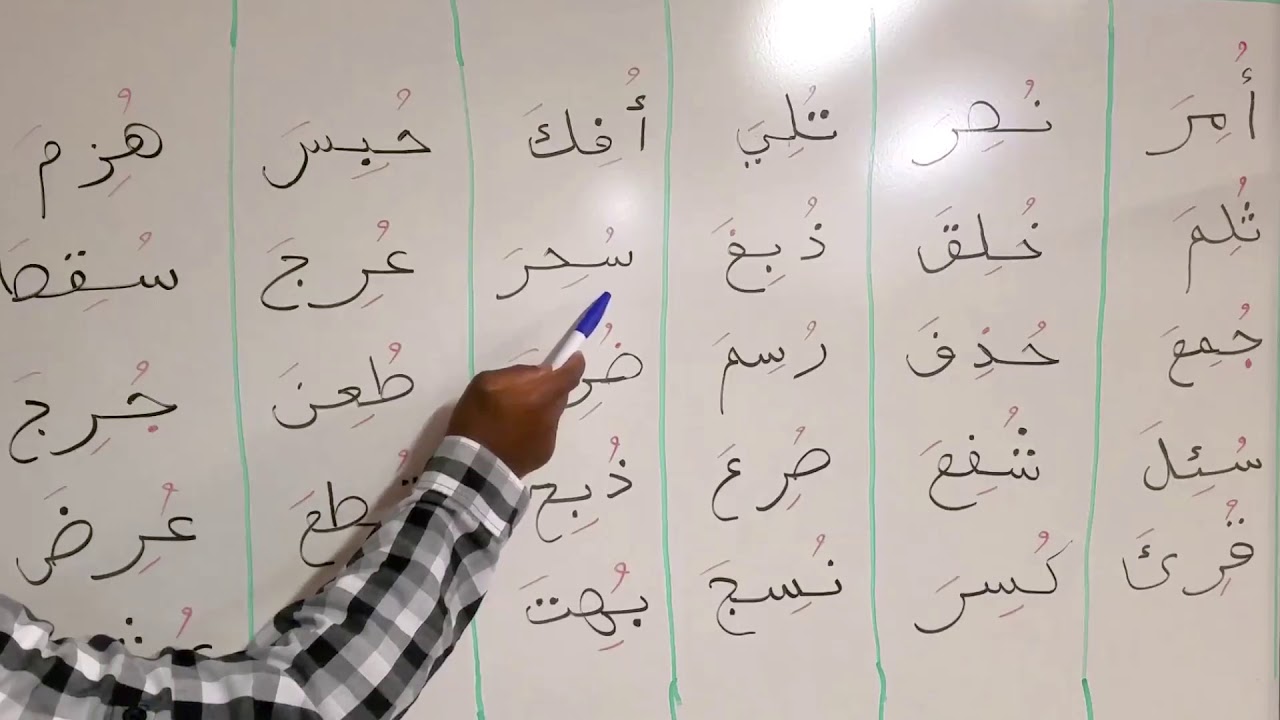 أُمِرَ
ثُلِمَ
جُمِعَ
سُئِلَ
قُرِئَ
نُصِرَ
خُلِقَ
حُذِفَ
شُفِعَ
كُسِرَ
تُلِيَ
ذُبِغَ
رُسِمَ
صُرِعَ
نُسِجَ
أُفِكَ
سُحِرَ
ذُبِح
بُهِتَ
حُبِسَ
عُرِجَ
طُعِنَ
هُزِمَ
سُقِطَ
جُرِجَ
عُرِضَ